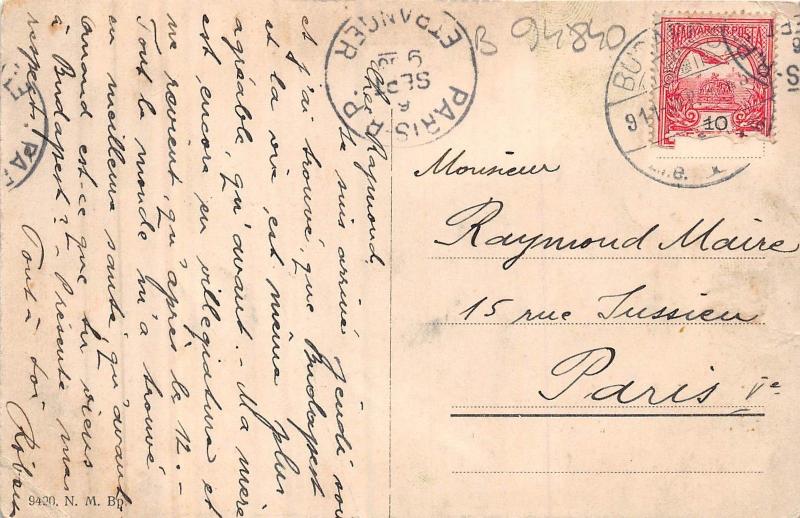 Cher Raymond,
Je suis arrivé jeudi soir
et j'ai trouvé, que Budapest
et la vie, est même plus
agréable, qu'avant. - Ma mère
est encore en villegiatura et
ne revient, qu'après le 12. -
Tout le monde m'a trouvé
en meilleure santé, qu'avant
Quand est-ce que tu viens
à Budapest? - Présente mes
respects!
Tout à toi
9420. N. M. Bp.
PARIS
ETRANGER
SEPT
B 94840
MAGYAR KIR. POSTA
10
BUDAPEST
Monsieur
Raymond Maire
15 rue Jussieu
Paris Ve